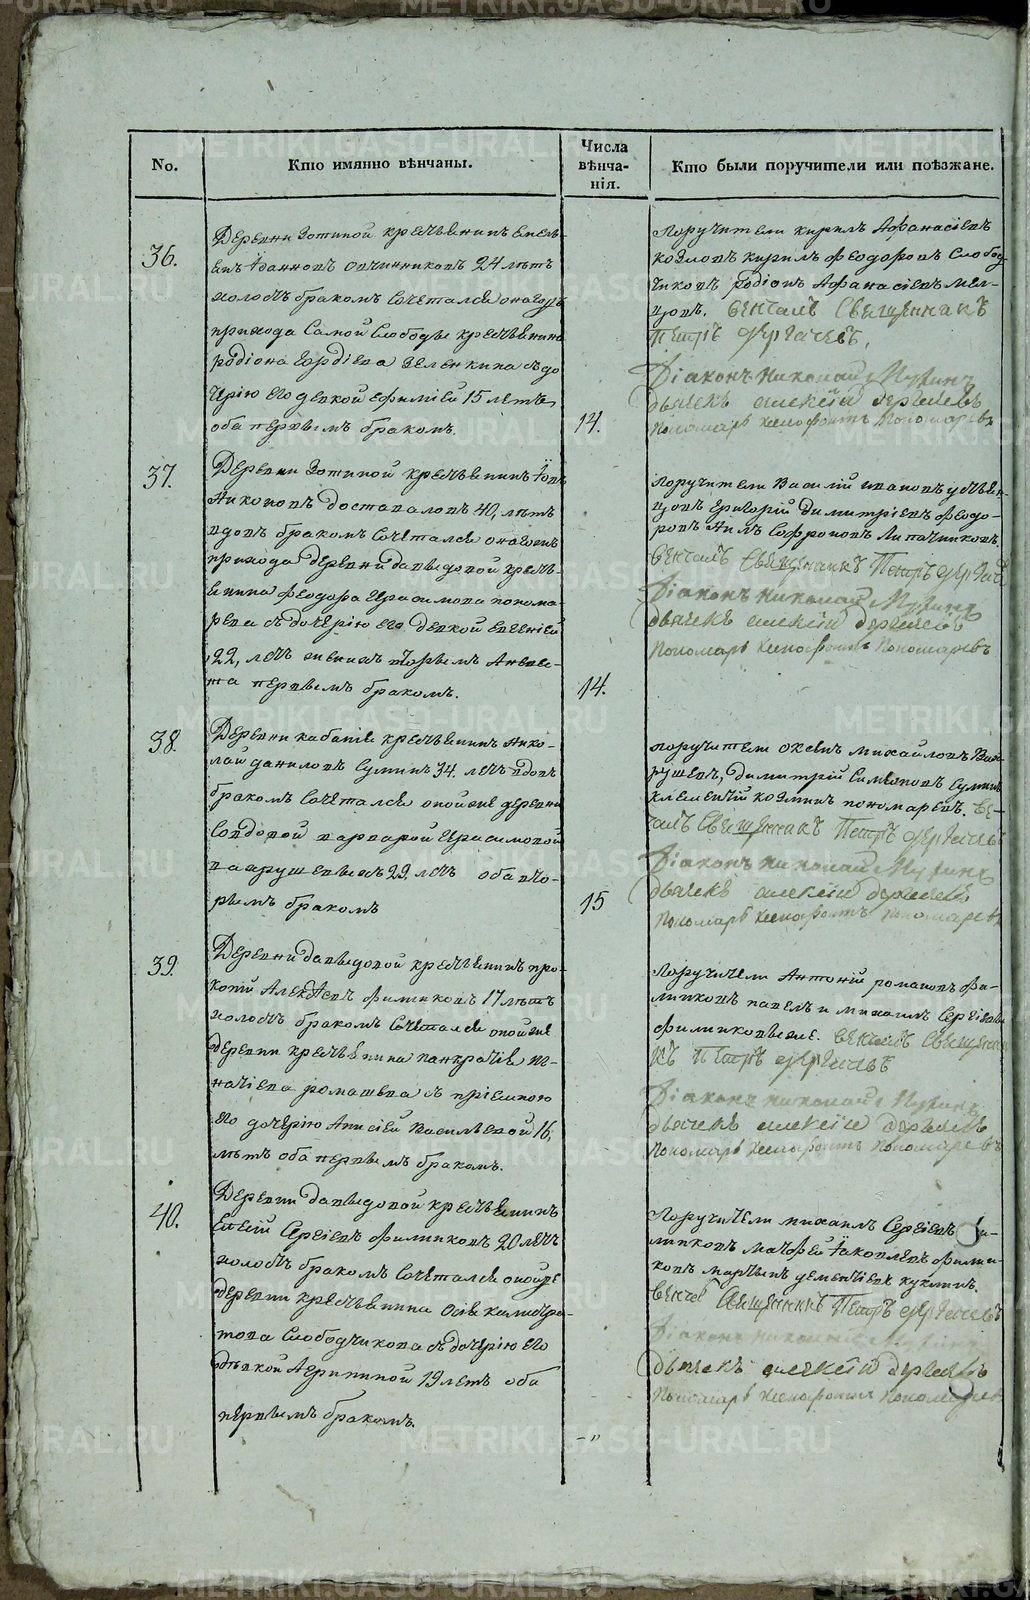 No.
Кто имянно вѣнчаны.
Числа
вѣнча-
нія.
Кто были поручители или поѣзжане.
36.
Деревни Зотиной крестьянинъ Емель-
янъ Іоанновъ Овчинниковъ 24 лѣтъ
холостъ бракомъ сочетался онагожъ
прихода Самой Слободы крестьянина
Родіона Гордіева Зеленкина съ до
черію его девкой Ефиміей 15 летъ
оба первымъ бракомъ.
14.
Поручители Кирилъ Афанасіевъ
Козловъ Кирилъ Феодоровъ Слобод-
чиковъ Родіонъ Афанасіевъ
венчалъ Священникъ
Петръ
Діаконъ Николай
дьячекъ Алексій
Пономарь Ксенофонтъ Пономаревъ
37.
Деревни Зотиной крестьянинъ Іовъ
Никоновъ Достоваловъ 40, лѣтъ
вдовъ бракомъ сочетался онагожъ
прихода деревни Давыдовой кресть-
янина Феодора Герасимова Понома-
рева съ дочерію его девкой Евгеніей
22, летъ женихъ вторымъ А невес-
та первымъ бракомъ.
14.
Поручители Василій Ивановъ
Григорій Димитріевъ Феодо-
ровъ Софроновъ
венчалъ Священникъ Петръ
Діаконъ Николай
дьячекъ Алексій
Пономарь Ксенофонтъ Пономаревъ
38.
Деревни крестьянинъ Нико-
лай Даниловъ Суминъ 34. летъ вдовъ
бракомъ сочетался оной же деревни
Совдовой Варварой Герасимовой
Вахрушевыхъ 29, летъ оба вто-
рымъ бракомъ
15
Поручители Михайловъ Вах-
рушевъ, Димитрій Симеоновъ Суминъ
Клементій Козминъ Пономаревъ. Ве-
чалъ Священникъ Петръ
Діаконъ Николай
дьячекъ Алексій
Пономарь Ксенофонтъ Пономаревъ
39.
Деревни Давыдовой крестьянинъ Про-
копій Алексѣевъ Филинковъ 17 лѣтъ
холостъ бракомъ сочетался оной же
деревни крестьянина Панкратія Иг-
натіева Ромашева съ пріемною
его дочерію Анисіей Васильевой 16,
лѣтъ оба первымъ бракомъ.
Поручители Антоній Романовъ Фи-
линковъ Павелъ и Михаилъ Сергіевы
Филинковы же. венчалъ Священни
къ Петръ
Діаконъ Николай
дьячекъ Алексій
Пономарь Ксенофонтъ Пономаревъ
40.
Деревни Давыдовой крестьянинъ
Сергіевъ Филинковъ 20 летъ
холостъ бракомъ сочетался оной же
деревни крестьянина Осіи Калистра-
това Слободчикова съ дочерію его
дѣвкой Агрипиной 19 летъ оба
первымъ бракомъ.
- „
Поручители Михаилъ Сергіевъ Фи-
линковъ Матфей Іаковлевъ Филин-
ковъ Мартынъ Дементіевъ Куклинъ.
венча Священникъ Петръ
Діаконъ Николай
дьячекъ Алексій
Пономарь Ксенофонтъ Пономаревъ
METRIKI.GASO-URAL.RU